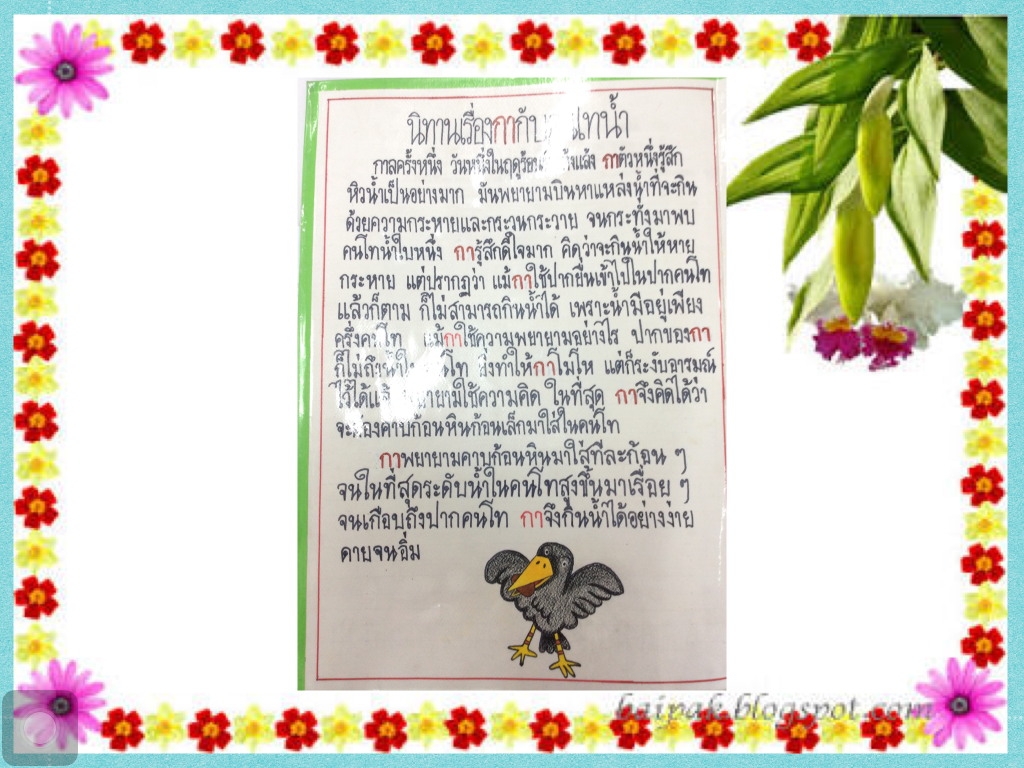 นิทานเรื่องกากับ
กาลครั้งหนึ่ง วันหนึ่งในฤดูร้อน แล้ง กาตัวหนึ่งรู้สึก
หิวน้ำเป็นอย่างมาก มันพยายามบินหาแหล่งน้ำที่จะกิน
ด้วยความกระหายและกระวนกระวาย จนกระทั่งมาพบ
คนโทน้ำใบหนึ่ง การู้สึกดีใจมาก คิดว่าจะกินน้ำให้หาย
กระหาย แต่ปรากฏว่า แม้กาใช้ปากยื่นเข้าไปในปากคนโท
แล้วก็ตาม ก็ไม่สามารถกินน้ำได้ เพราะน้ำมีอยู่เพียง
ครึ่งคนโท แม้กาใช้ความพยายามอย่างไร ปากของกา
ก็ไม่ถึงน้ำใน ทำให้กาโมโห แต่ก็ระงับอารมณ์
ไว้ได้ ใช้ความคิด ในที่สุด กาจึงคิดได้ว่า
จะต้องคาบก้อนหินก้อนเล็กมาใส่ในคนโท
กาพยายามคาบก้อนหินมาใส่ทีละก้อน ๆ
จนในที่สุดระดับน้ำในคนโทสูงขึ้นมาเรื่อย ๆ
จนเกือบถึงปากคนโท กาจึงกินน้ำได้อย่างง่าย
ดายจนอิ่ม
baipak.blogspot.com